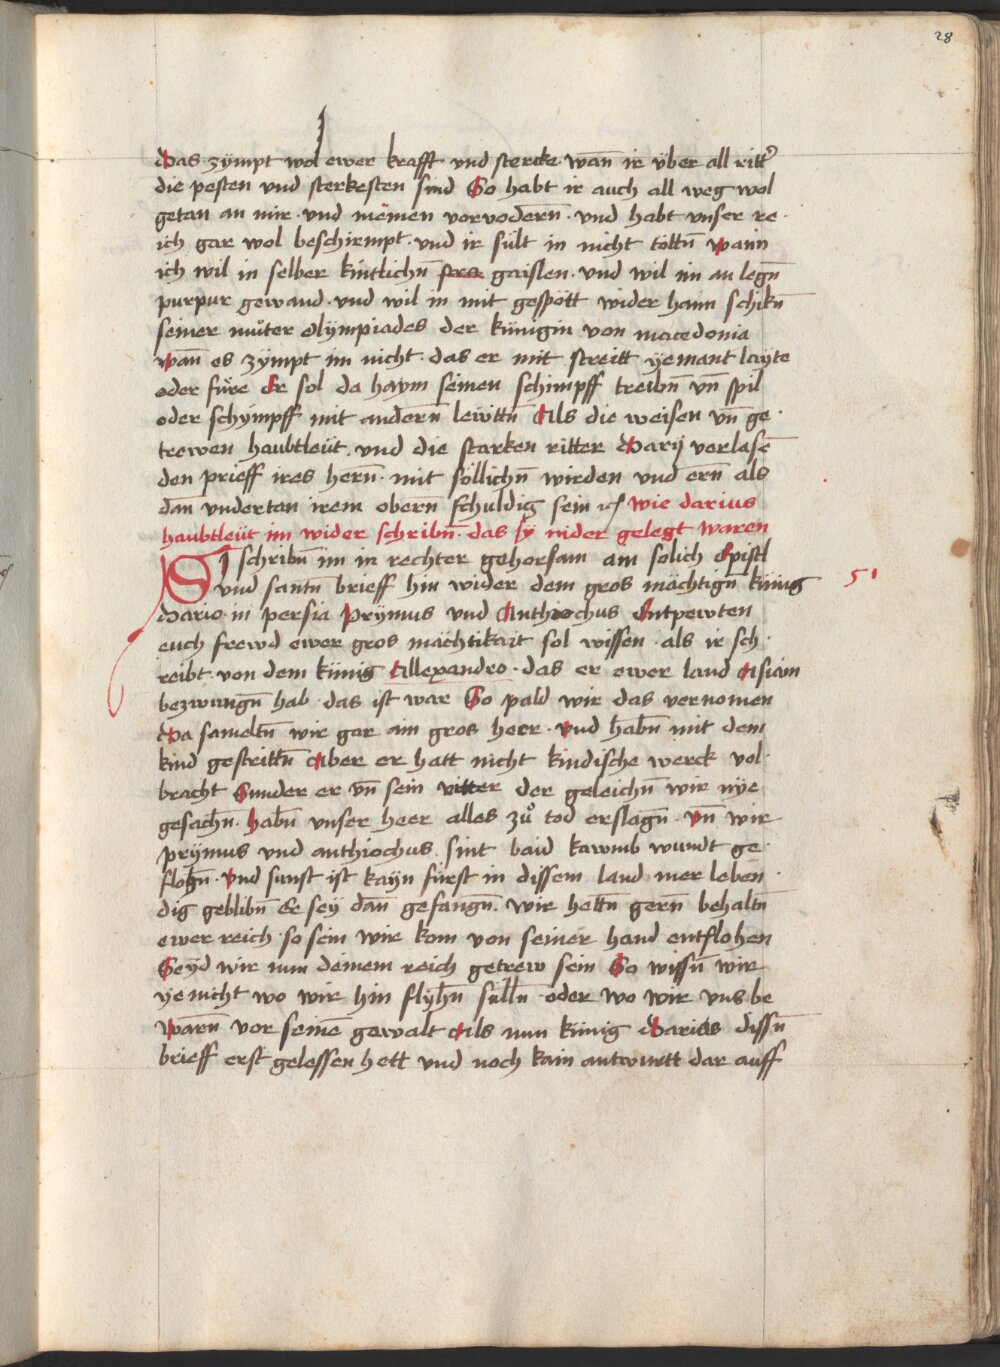 28
Das zÿmpt wol ewer krafft vnd stercke wan̄ ir über all ritt̉
die pesten vnd sterkesten sind So habt ir auch all weg wol
getan an mir · vnd meinen vorvodern̄ · vnd habt vnser re ·
ich gar wol beschirmpt · vnd ir sült in nicht töttn̄ wann
ich wil in selber kintlichn̄ gaislen · vnd wil im an legn̄
purpur gewand · vnd wil in mit gespött wider haim schikn̄
seiner muͦter olÿmpiades der künigin von macedonia
wan̄ es zÿmpt im nicht · das er mit streitt yemant layte
oder füre Er sol da haym seinen schimpff treibn̄ vn̄ spil
oder schympff mit andern̄ lewttn̄ Als die weisen vn̄ ge ·
trewen haubtleüt · vnd die starken ritter Darij verlasē
den prieff ires hern̄ · mit söllichn̄ wirden vnd ern̄ als
dan̄ vndertan irem obern̄ schuldig sein ꝛc wie darius
haubtleüt im wider schribn̄ · das sÿ nider gelegt waren
SI schribn̄ im in rechter gehorsam am solich Epistl
vnd santn̄ brieff hin wider dem gros mächtign̄ künig
51
Dario in persia Prÿmus vnd Anthiochus Entpewten
euch frewd ewer gros mächtikait sol wissen · als ir sch ·
reibt · von dem künig Allexandro · das er ewer land Asiam
bezwungn̄ hab · das ist war So pald wir das vernomen
Da sameltn̄ wir gar ain gros heer · Vnd habn̄ mit dem
kind gestrittn̄ Aber er hatt nicht kindische werck vol ·
bracht Sunder er vn̄ sein ritter der geleichn̄ wir nÿe
gesachn̄ · habn̄ vnser heer alles zuͦ tod erslagn̄ · vn̄ wir
prÿmus vnd anthiochus sint baid kawmb wundt ge ·
flohn̄ · Vnd sunst ist kayn fürst in dissem land mer leben ·
dig geblibn̄ Er seÿ dan̄ gefangn̄ · wir hettn̄ gern̄ behaltn̄
ewer reich · so sein wir kom von seiner hand entflohen
Seÿd wir nun deinem reich getrew sein So wissn̄ wir
ye nicht wo wir hin flÿhn̄ sülln̄ oder wo wir vns be
warn̄ vor seinē gewalt Als nun künig Darius dissn̄
brieff erst gelessen hett vnd noch kain antwurtt dar auff